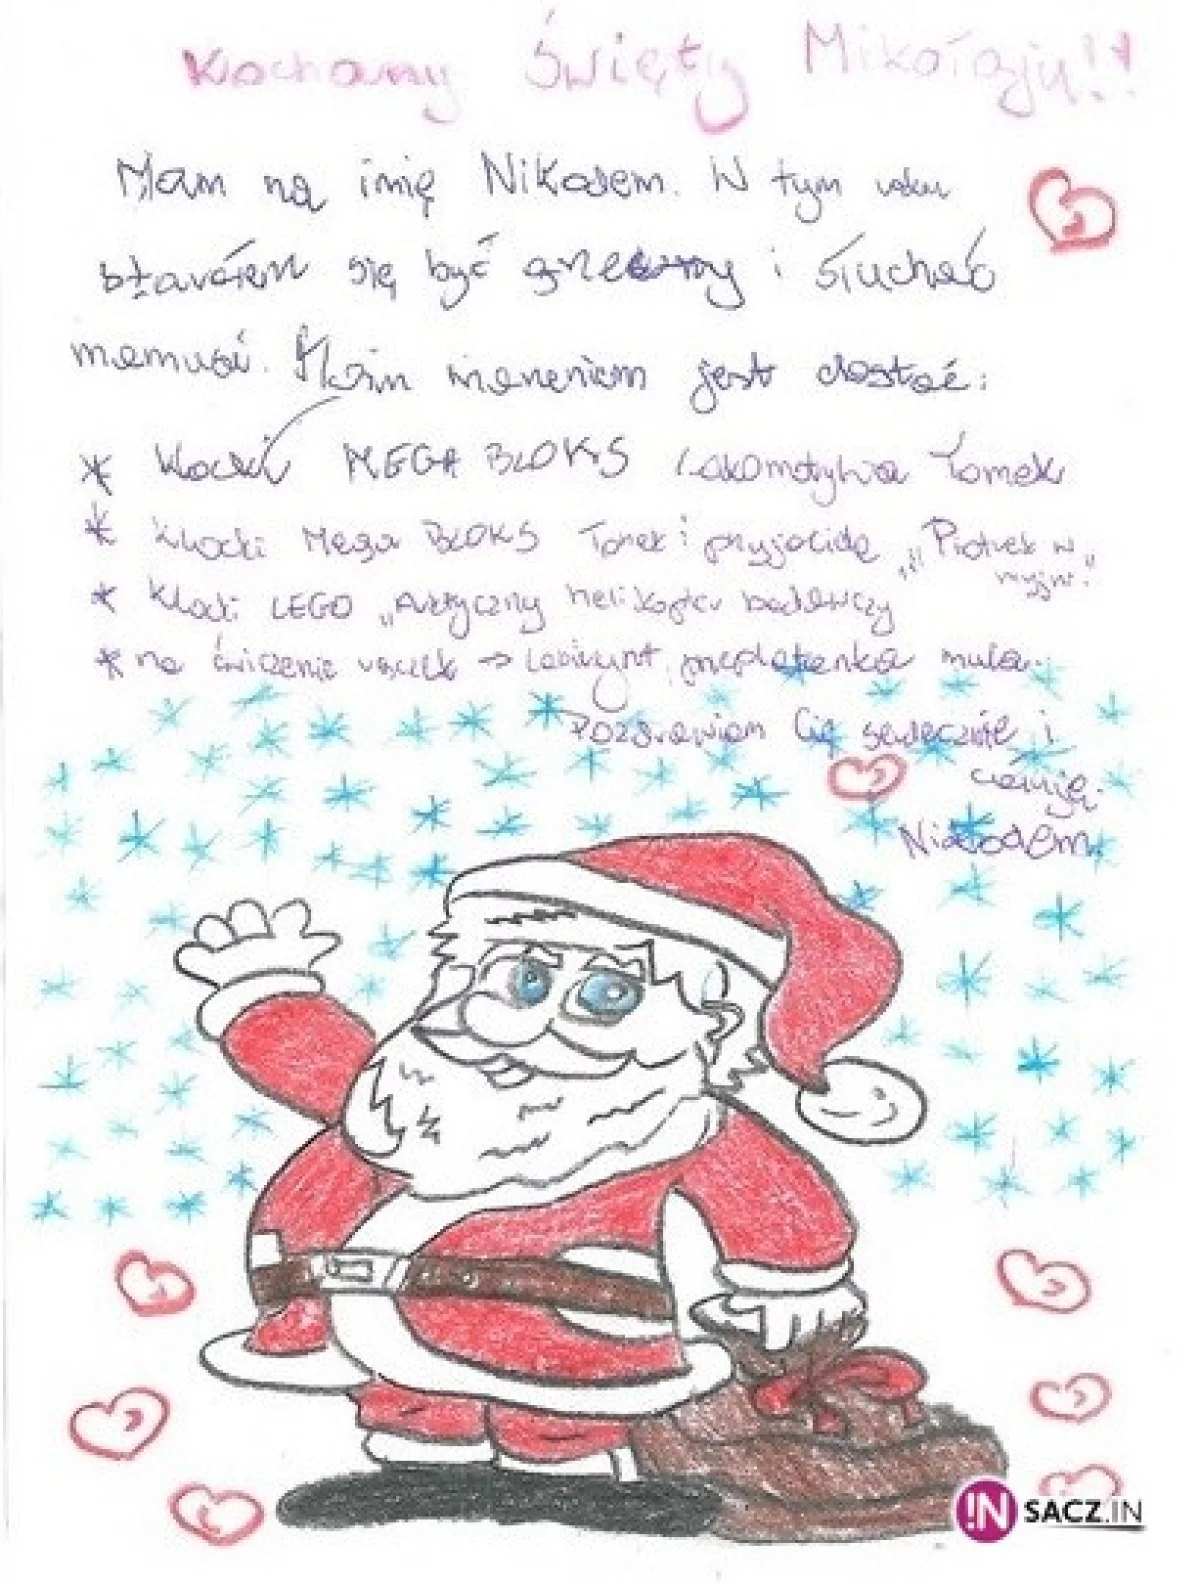 Kochany Święty Mikołaju!!
Mam na imię Nikodem. W tym roku
starałem się być grzeczny i słuchać
mamusi. Moim marzeniem jest dostać:
* klocki MEGA BLOKS Lokomotywa Tomek
* klocki Mega BLOKS Tomek i przyjaciele „Piotrek w
myjni"
* klocki LEGO „Arktyczny helikopter badawczy
* na ćwiczenie rączek → Labirynt, przeplatanka
Pozdrawiam Cię serdecznie i
Nikodem
!N SACZ.IN